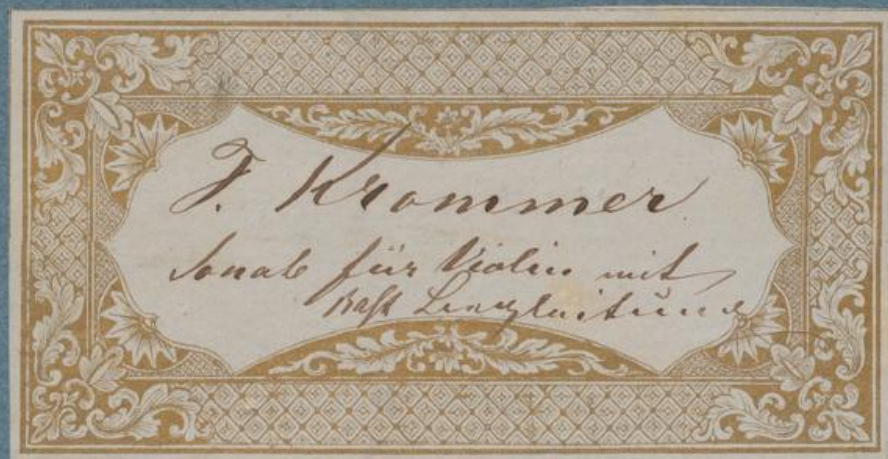 F. Krommer
Sonate für Violin mit
Baß Begleitung